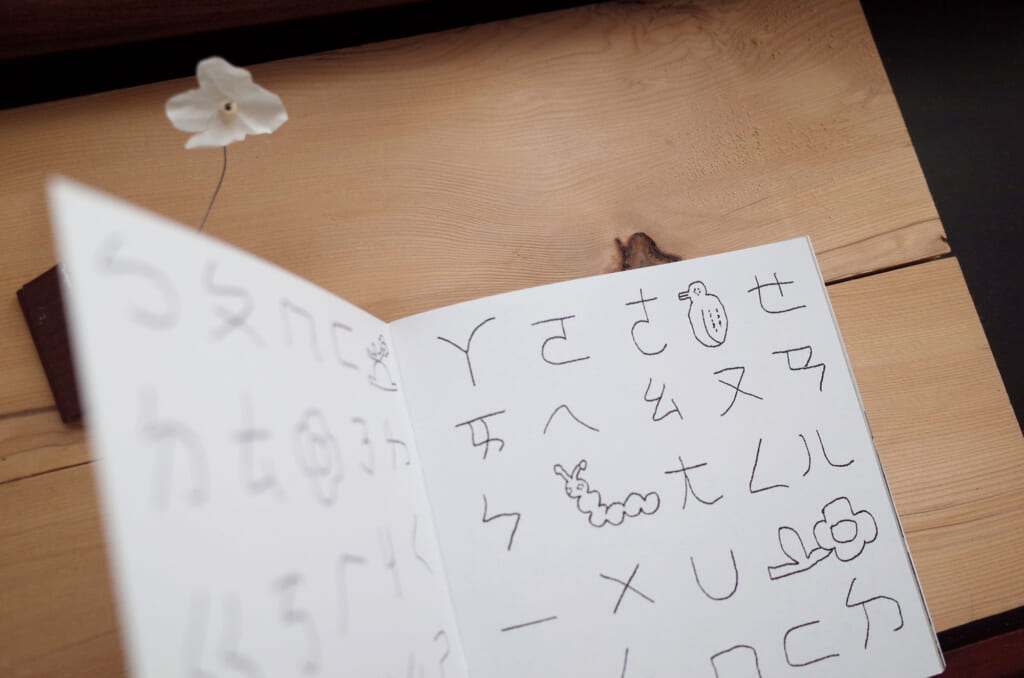 ㄅ ㄆ ㄇ ㄈ
ㄉ ㄊ ㄋ ㄌ
ㄍ ㄎ ㄏ ㄐ ㄑ
ㄚ ㄛ ㄜ ㄝ
ㄞ ㄟ ㄠ ㄡ ㄢ
ㄣ ㄤ ㄥ ㄦ
ㄧ ㄨ ㄩ
ㄇ ㄈ ㄉ